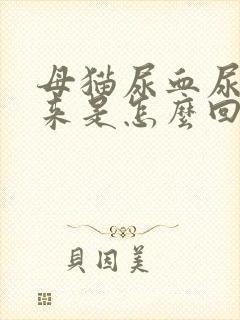 母猫尿血尿
来是怎麽回
貝因美